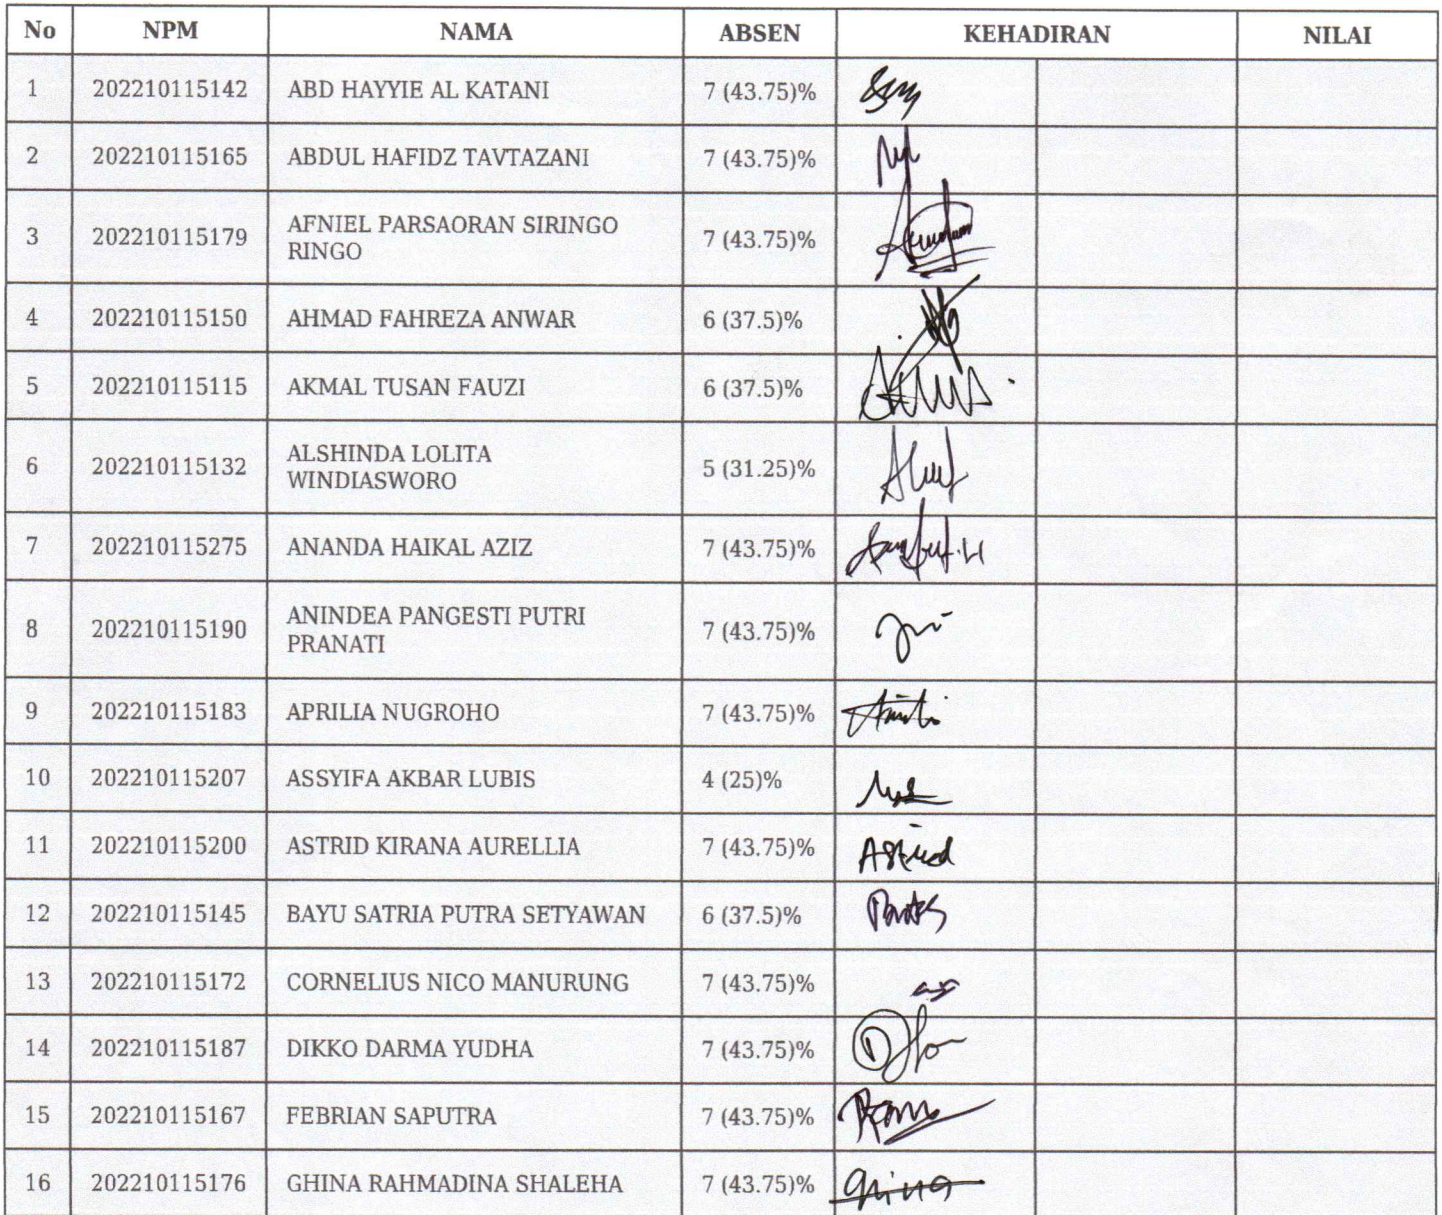 No NPM NAMA ABSEN KEHADIRAN NILAI
1 202210115142 ABD HAYYIE AL KATANI 7 (43.75)%
2 202210115165 ABDUL HAFIDZ TAVTAZANI 7 (43.75)%
3 202210115179 AFNIEL PARSAORAN SIRINGO
RINGO 7 (43.75)%
4 202210115150 AHMAD FAHREZA ANWAR 6 (37.5)%
5 202210115115 AKMAL TUSAN FAUZI 6 (37.5)%
6 202210115132 ALSHINDA LOLITA
WINDIASWORO 5 (31.25)%
7 202210115275 ANANDA HAIKAL AZIZ 7 (43.75)%
8 202210115190 ANINDEA PANGESTI PUTRI
PRANATI 7 (43.75)%
9 202210115183 APRILIA NUGROHO 7 (43.75)%
10 202210115207 ASSYIFA AKBAR LUBIS 4 (25)%
11 202210115200 ASTRID KIRANA AURELLIA 7 (43.75)% Astrid
12 202210115145 BAYU SATRIA PUTRA SETYAWAN 6 (37.5)%
13 202210115172 CORNELIUS NICO MANURUNG 7 (43.75)%
14 202210115187 DIKKO DARMA YUDHA 7 (43.75)%
15 202210115167 FEBRIAN SAPUTRA 7 (43.75)%
16 202210115176 GHINA RAHMADINA SHALEHA 7 (43.75)% Ghina